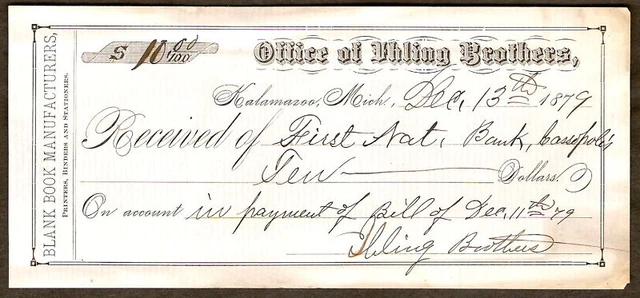 BLANK BOOK MANUFACTURERS,
PRINTERS, BINDERS AND STATIONERS.
$ 10 00/100
Office of Ihling Brothers,
Kalamazoo, Mich, Dec, 13th 1879
Received of First Nat, Bank, Cassopolis
Ten Dollars.
On account in payment of Bill of Dec, 11th 79
Ihling Brothers